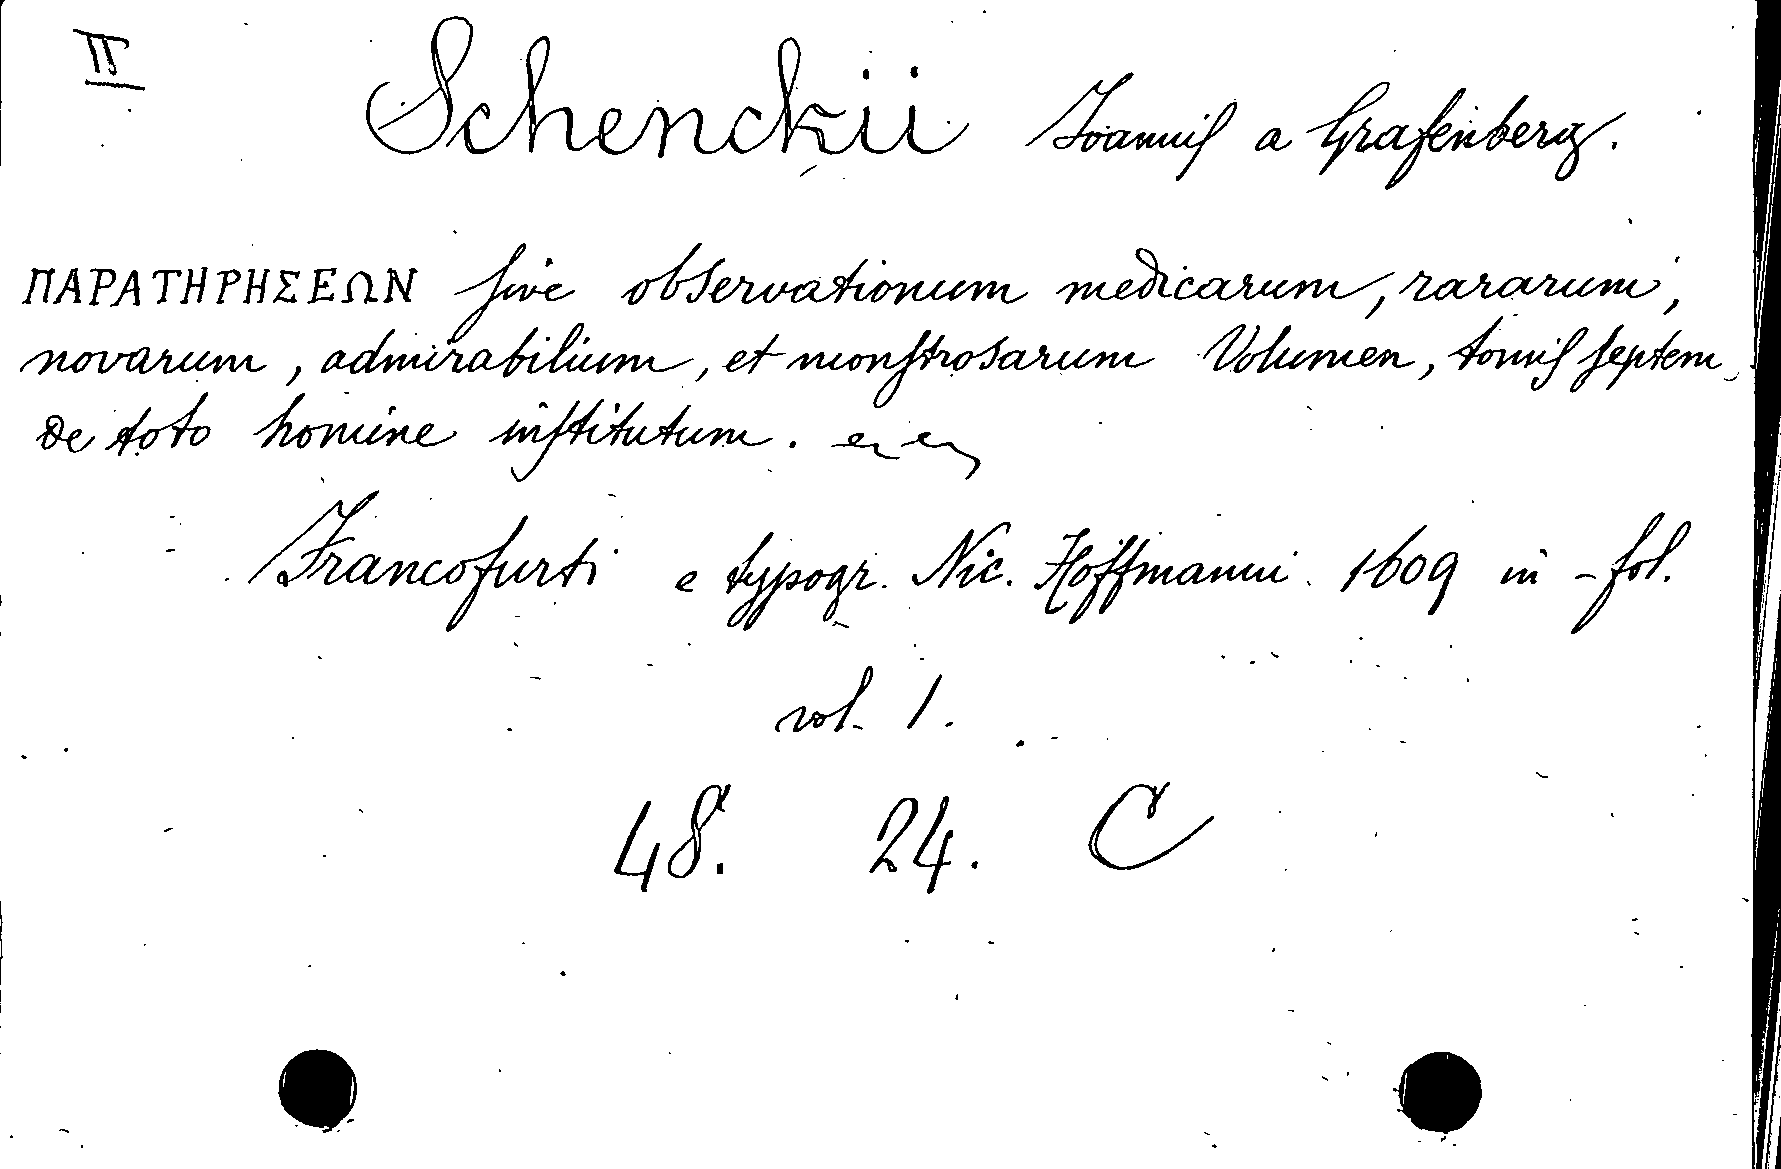 II
Schenckii Joannis a Grafenberg.
ΠΑΡΑΤΗΡΗΣΕΩΝ sive observationum medicarum, rararum,
novarum, admirabilium, et monstrosarum Volumen, tomis septem
de toto homine institutum.
Francofurti e typogr. Nic. Hoffmanni. 1609 in-fol.
vol. 1.
48. 24. C